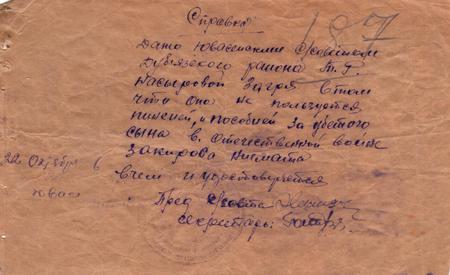 Справка
Дано Ювасинским с/советом
Дубъязского района Т.Р.
Насыровой Загря в том
что она не пользуется
пенсией, и пособией за убитого
сына в отечественной войне
Закирова Нигмата
в чем и удостоверяется
Пред с/совета
секретарь: